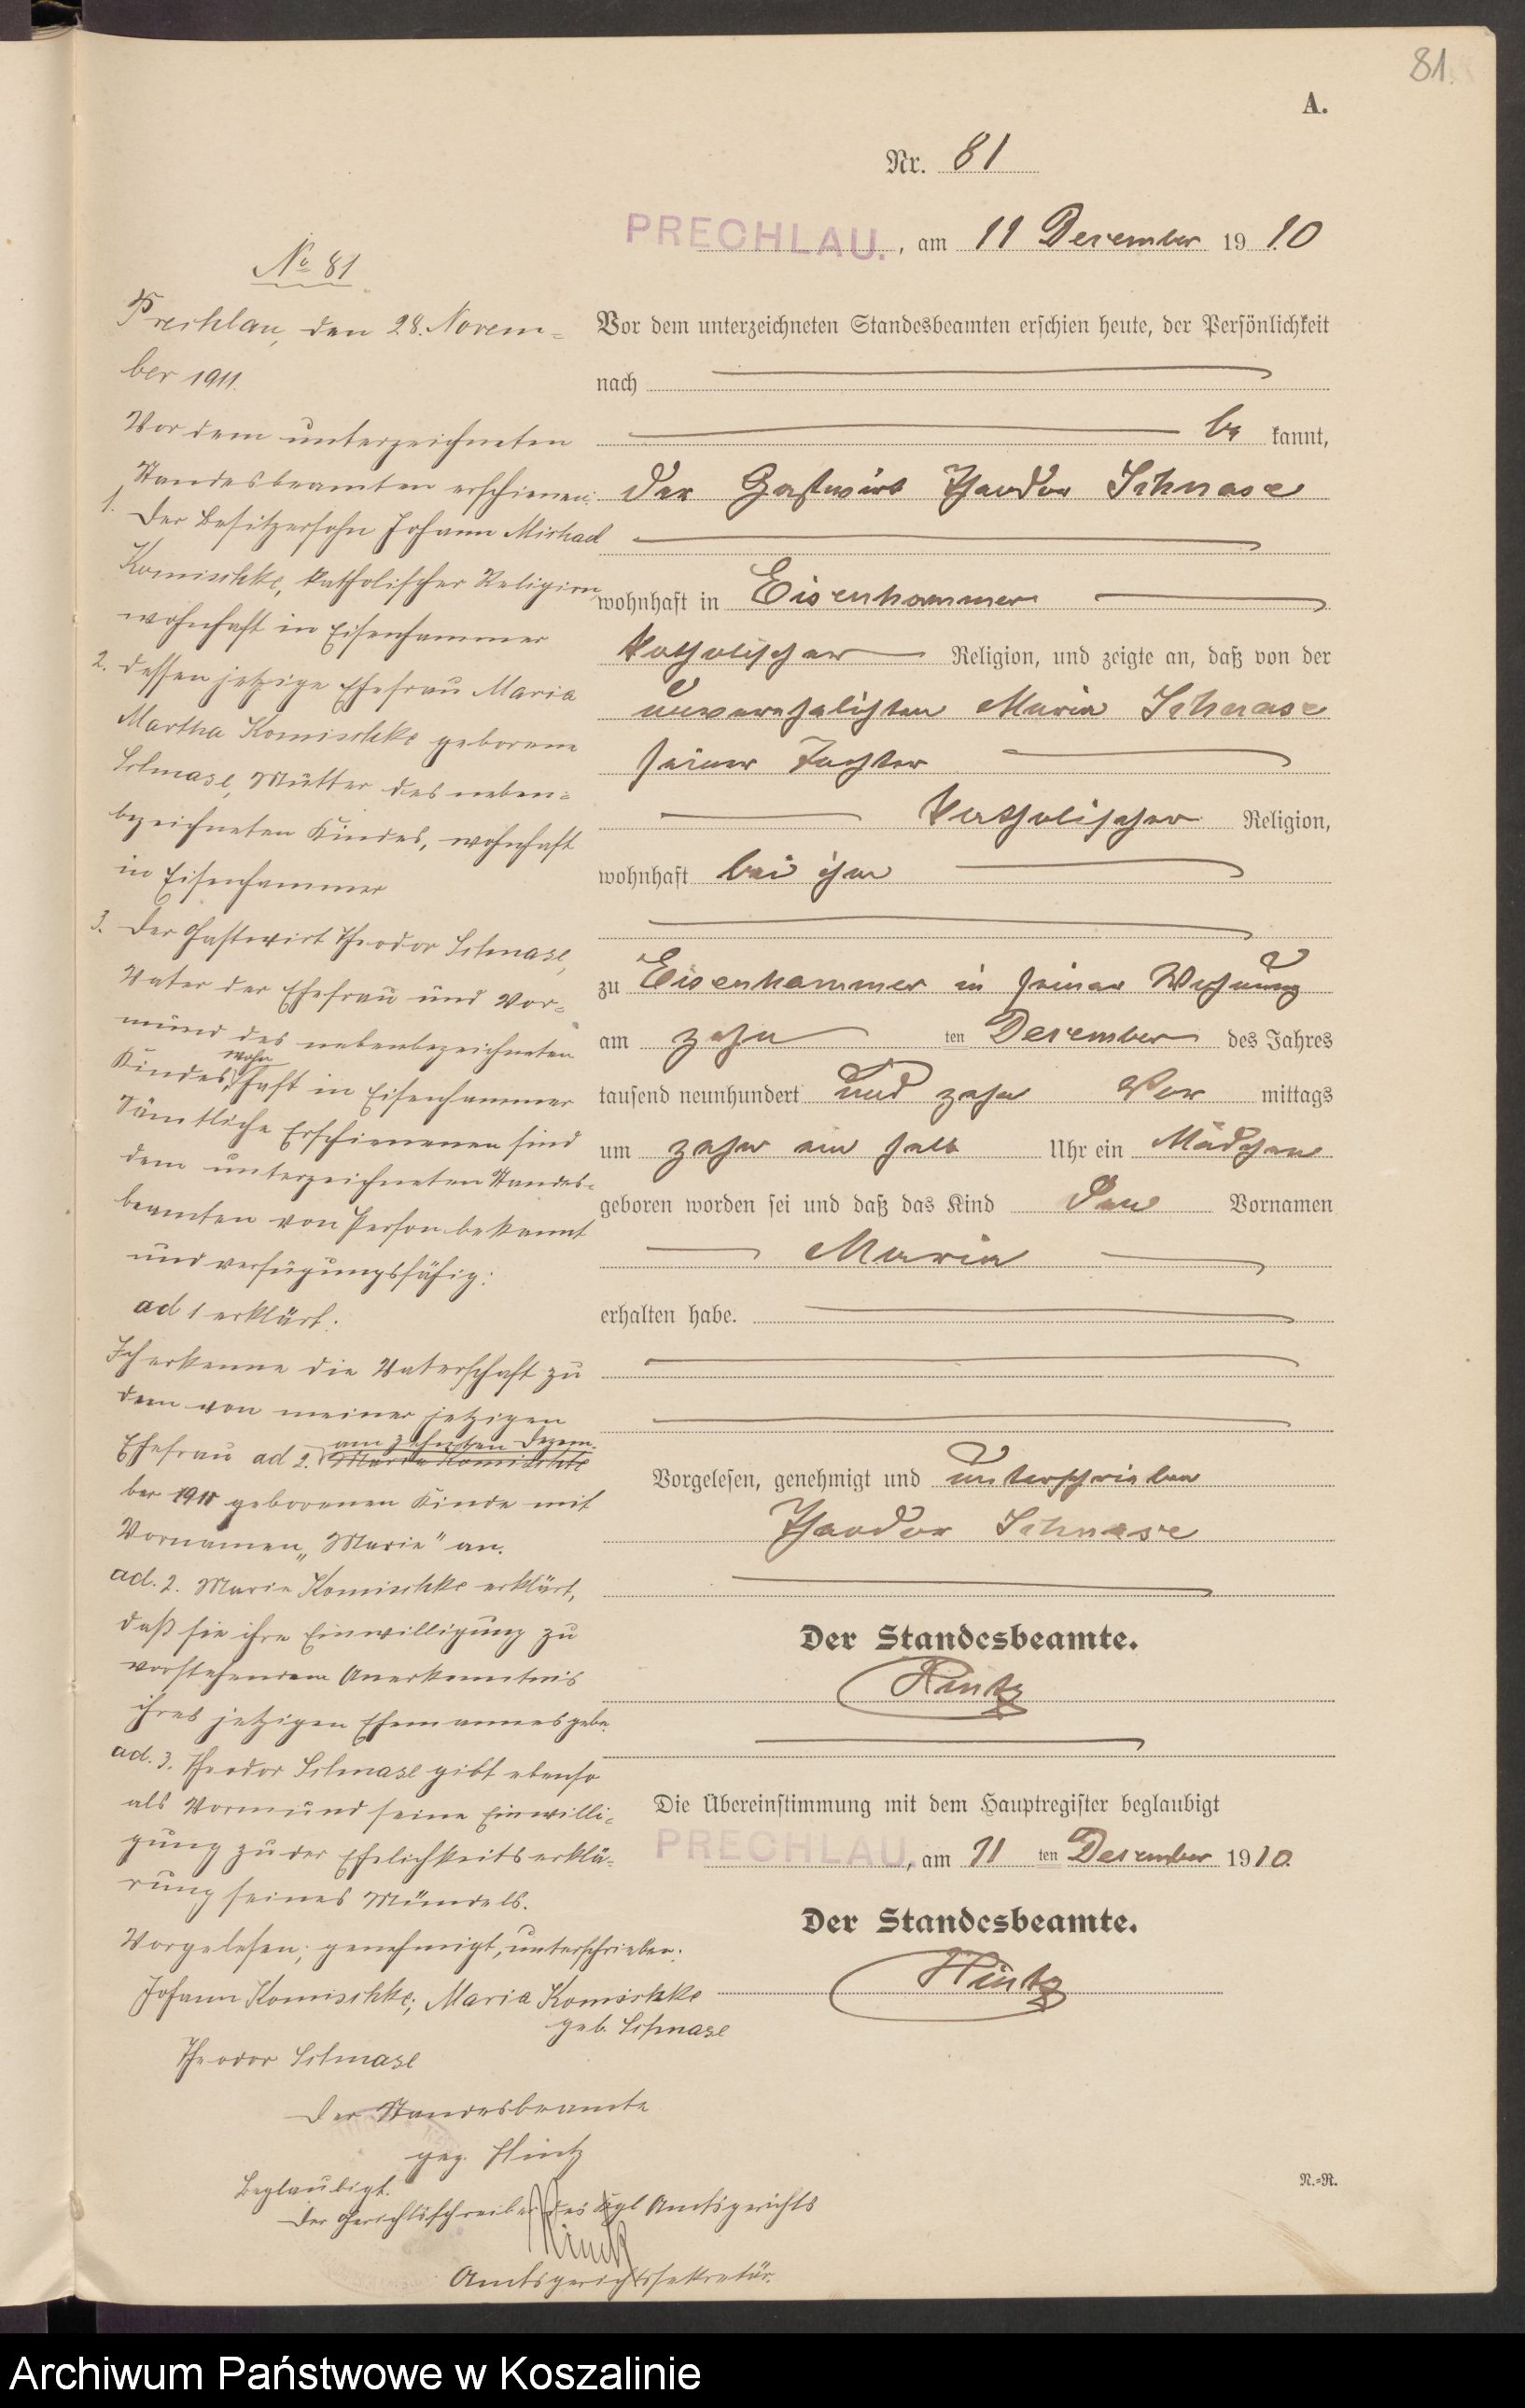 81.
A.
Nr. 81
PRECHLAU., am 11 Dezember 1910
Vor dem unterzeichneten Standesbeamten erschien heute, der Persönlichkeit
nach
be kannt,
der Gastwirt Theodor Schnase
wohnhaft in Eisenhammer
katholischer Religion, und zeigte an, daß von der
unverehelichten Maria Schnase
seiner Tochter
katholischer Religion,
wohnhaft bei ihm
zu Eisenhammer in seiner Wohnung
am zehn ten Dezember des Jahres
tausend neunhundert und zehn Vor mittags
um zehn ein halb Uhr ein Mädchen
geboren worden sei und daß das Kind den Vornamen
Maria
erhalten habe.
Vorgelesen, genehmigt und unterschrieben
Theodor Schnase
Der Standesbeamte.
Hintz
Die Übereinstimmung mit dem Hauptregister beglaubigt
PRECHLAU., am 11 ten Dezember 1910.
Der Standesbeamte.
Hintz
N.=R.
No 81
Prechlau, den 28. Novem=
ber 1911.
Vor dem unterzeichneten
Standesbeamten erschienen:
1. Der Besitzersohn Johann Michael
Komischke, katholischer Religion,
wohnhaft in Eisenhammer
2. dessen jetzige Ehefrau Maria
Martha Komischke geborene
Schnase, Mutter des neben=
bezeichneten Kindes, wohnhaft
in Eisenhammer
3. Der Gastwirt Theodor Schnase,
Vater der Ehefrau und Vor=
mund des nebenbezeichneten
Kindes, wohnhaft in Eisenhammer
Sämtliche Erschienenen sind
dem unterzeichneten Standes=
beamten von Person bekannt
und verfügungsfähig:
ad 1 erklärt:
Ich erkenne die Vaterschaft zu
dem von meiner jetzigen
Ehefrau ad 2. Maria Komischke am zehnten Dezem=
ber 1910 geborenen Kinde mit
Vornamen „Maria" an.
ad. 2. Maria Komischke erklärt,
daß sie ihre Einwilligung zu
vorstehendem Anerkenntnis
ihres jetzigen Ehemannes gebe.
ad. 3. Theodor Schnase gibt ebenso
als Vormund seine Einwilli=
gung zu der Ehelichkeitserklä=
rung seines Mündels.
Vorgelesen, genehmigt, unterschrieben:
Johann Komischke; Maria Komischke
geb. Schnase
Theodor Schnase
Der Standesbeamte
gez. Hintz
Beglaubigt.
Der Gerichtsschreiber des Kgl Amtsgerichts
Amtsgerichtssekretär.
Archiwum Państwowe w Koszalinie